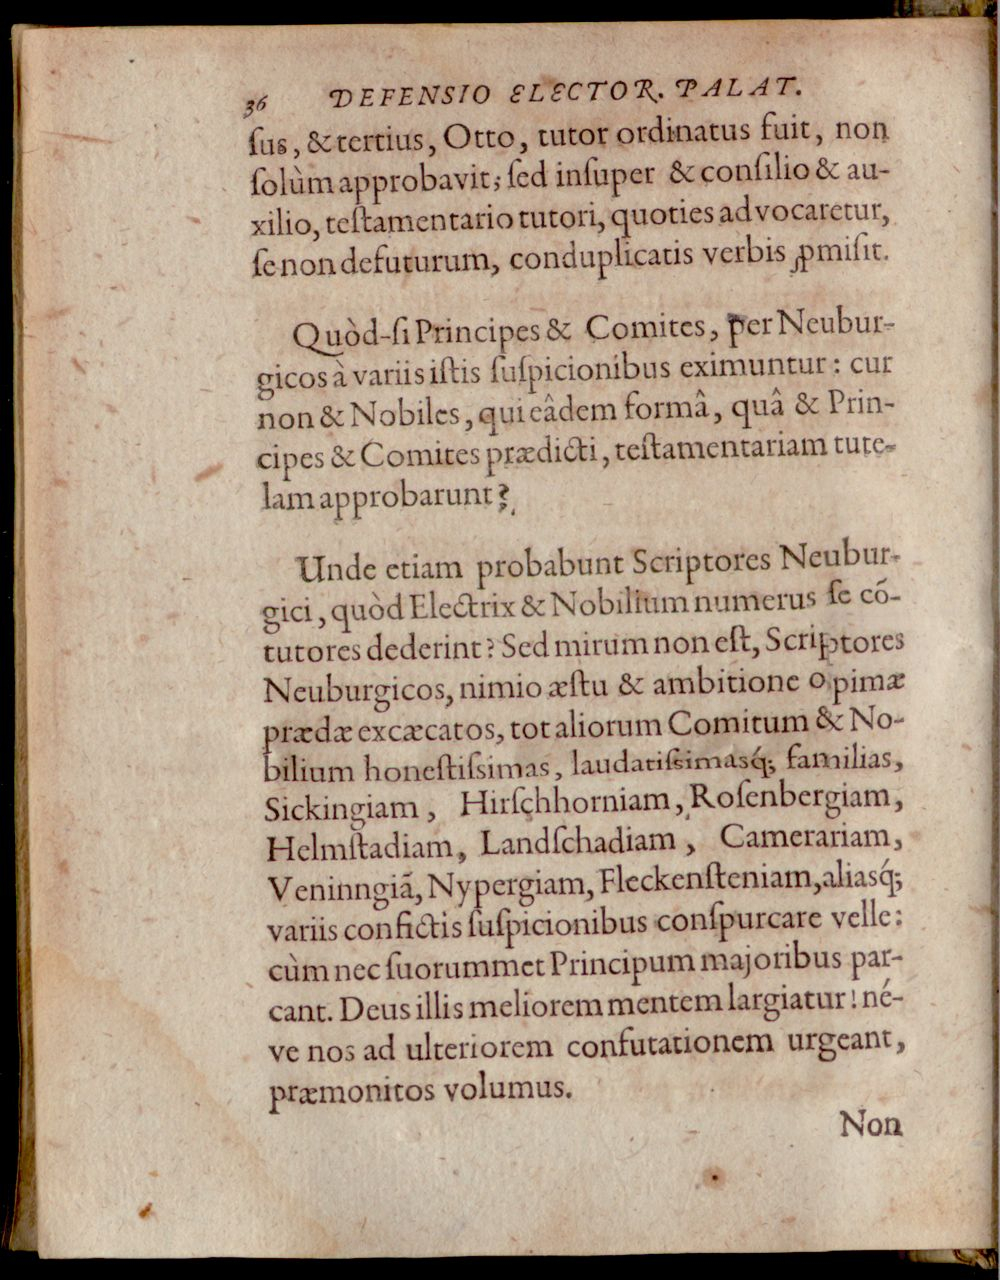 36 DEFENSIO ELECTOR. PALAT.
ſus, & tertius, Otto, tutor ordinatus fuit, non
ſolùm approbavit; ſed inſuper & conſilio & au-
xilio, teſtamentario tutori, quoties advocaretur,
ſe non defuturum, conduplicatis verbis ꝓmiſit.
Quòd-ſi Principes & Comites, per Neubur-
gicos à variis iſtis ſuſpicionibus eximuntur: cur
non & Nobiles, qui eâdem formâ, quâ & Prin-
cipes & Comites prædicti, teſtamentariam tute-
lam approbarunt?
Unde etiam probabunt Scriptores Neubur-
gici, quòd Electrix & Nobilium numerus ſe cō-
tutores dederint? Sed mirum non eſt, Scriptores
Neuburgicos, nimio æſtu & ambitione opimæ
prædæ excæcatos, tot aliorum Comitum & No-
bilium honeſtiſsimas, laudatiſsimasq́;, familias,
Sickingiam, Hirſchhorniam, Roſenbergiam,
Helmſtadiam, Landſchadiam, Camerariam,
Veninngiā, Nypergiam, Fleckenſteniam, aliasq́;
variis confictis ſuſpicionibus conſpurcare velle:
cùm nec ſuorummet Principum majoribus par-
cant. Deus illis meliorem mentem largiatur! né-
ve nos ad ulteriorem confutationem urgeant,
præmonitos volumus.
Non